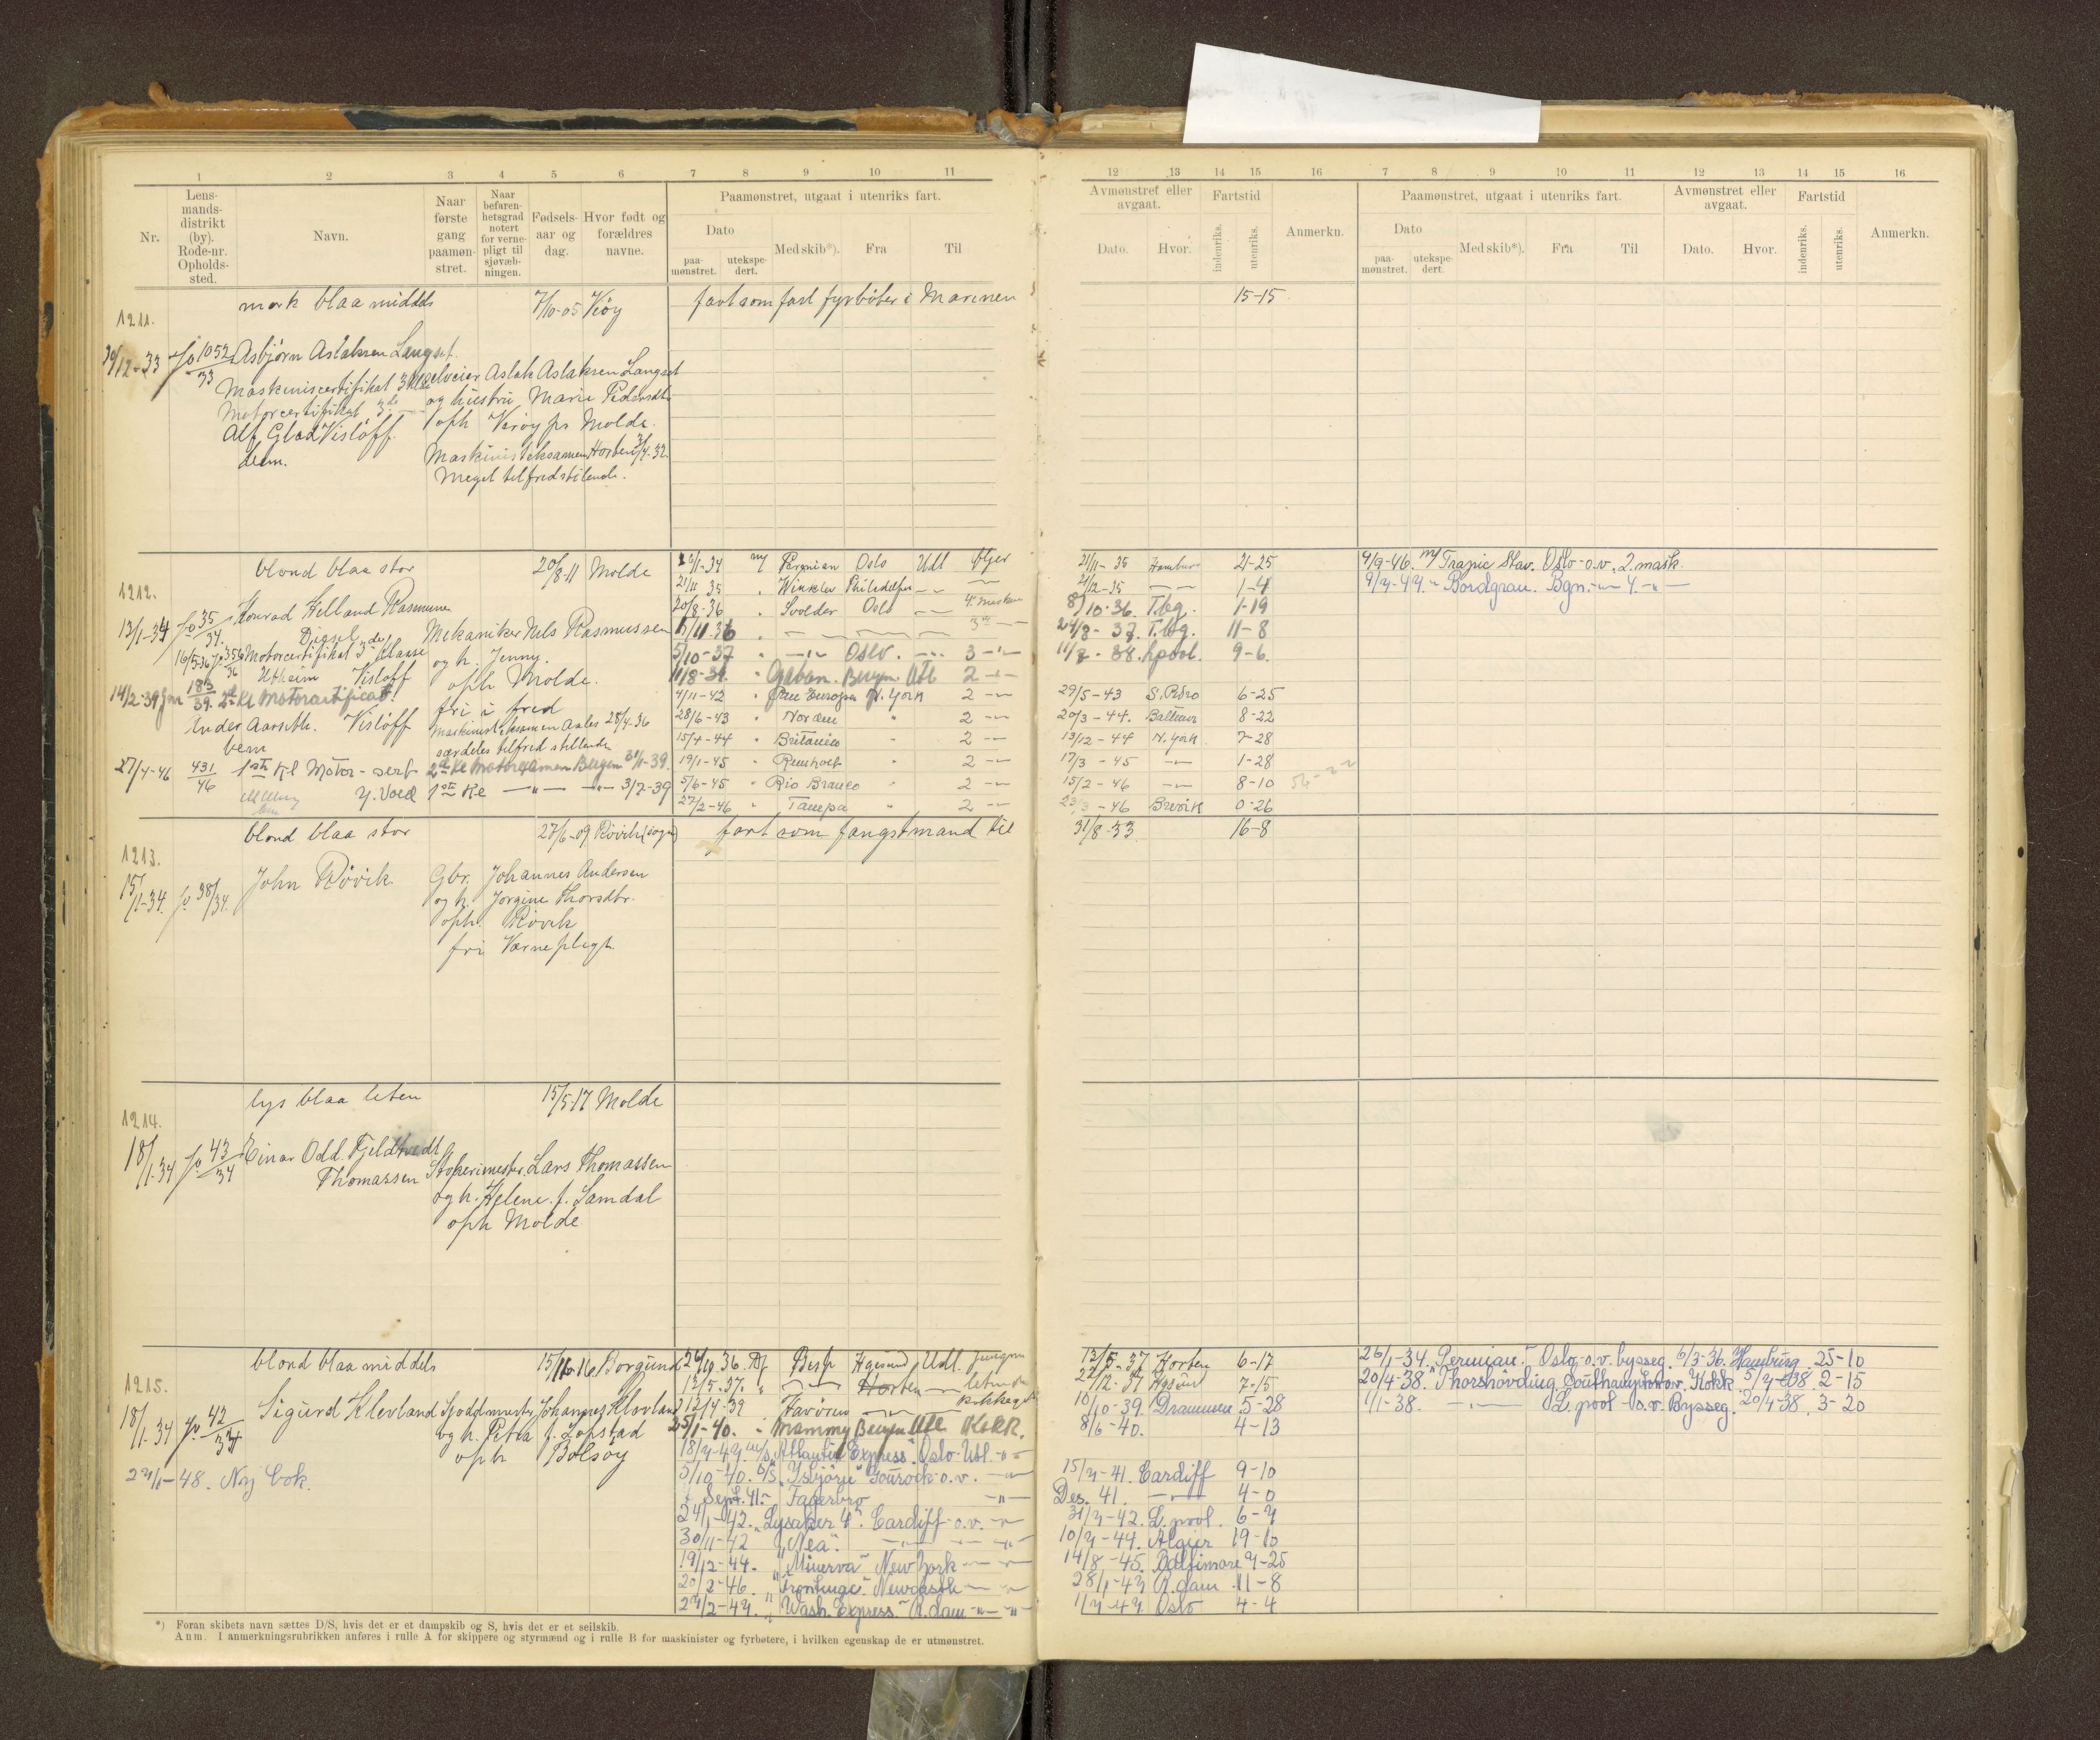 1 2 3 4 5 6 7 8 9 10 11
Nr.
Lens-
mands-
distrikt
(by).
Rode-nr.
Opholds-
sted.
Navn.
Naar
første
gang
paamøn-
stret.
Naar
befaren-
hetsgrad
notert
for verne-
pligt til
sjøvæb-
ningen.
Fødsels-
aar og
dag.
Hvor født og
forældres
navne.
Paamønstret, utgaat i utenriks fart.
Dato
paa-
mønstret.
utekspe-
dert.
Med skib*).
Fra
Til
12 13 14 15 16 7 8 9 10 11 12 13 14 15 16
Avmønstret eller
avgaat.
Dato.
Hvor.
Fartstid
indenriks.
utenriks.
Anmerkn.
Paamønstret, utgaat i utenriks fart.
Dato
paa-
mønstret.
utekspe-
dert.
Med skib*).
Fra
Til
Avmønstret eller
avgaat.
Dato.
Hvor.
Fartstid
indenriks.
utenriks.
Anmerkn.
mørk blaa middels 7/10-05 Veøy fart som fast fyrbøter i Marinen 15-15
1211.
30/12-33 1052/33 Asbjørn Aslaksen Langset
Selveier Aslak Aslaksen Langset
og hustru Marie Pedersdtr
oph Veøy pr Molde.
Alf Glad Visløff
Maskinisteksamen Horten
Meget tilfredstilende.
blond blaa stor 20/8-11 Molde
1212.
13/1-34 35/34 Konrad Helland Rasmussen
Mekaniker Nils Rasmussen
og h. Jenny.
oph Molde.
fri i fred
Motorcertifikat 3de klasse
Visløff
14/2-39 183/39 2den Kl Motorcertifikat
27/4-46 431/46 1ste Kl Motor-sert
2de Kl Motorexamen Bergen
1ste Kl 3/2-39
12/11-34 Permian Oslo Utl 21/11-35 Hamburg 21-25
21/11 35 Winkler Philedelfia 1-4
20/8-36 Svolder Oslo 8/10-36. Tbg. 1-19
24/8-37. Tbg. 11-8
5/10-37 Oslo. 3 11/8-38. Lpool. 9-6
11/8-39. Gabon. Bergen Utl 2
4/11-42 N. York 2 29/5-43 S. Pedro 6-25
28/6-43 Norden 2 20/3-44. 8-22
15/4-44 Britanico 2 13/12-44 N. York 7-28
19/1-45 Remholt 2 17/3-45 1-28
5/6-45 Rio Branco 2 15/2-46 8-10
27/2-46 Tampa 2 23/3-46 Brevik 0-26
9/9-46. M/ Trapic Stav. Oslo-o.v. 2. mask.
9/4-47. Bordgrau. Bgn. 4.
blond blaa stor 27/6-09 Røvik (sogn) fart som fangstmand til 31/8-33 16-8
1213.
15/1-34. 38/34. John Røvik Gbr. Johannes Andersen
og h. Jørgine Thorsdtr.
oph. Røvik
fri Værneplegt.
lys blaa liten 15/5-17 Molde
1214.
18/1-34 43/34 Einar Odd Fjeldtvedt
Thomassen Støperimester Lars Thomassen
og h. Helene f. Samdal
oph Molde
blond blaa middels 15/10-16 Borgund
1215.
18/1-34 42/34 Sigurd Klevland Johannes Klevland
og h. Petra f. Lopstad
oph Bolsøy
27/1-48. Ny bok.
24/10 36. D/ Besp Hgesund Utl. 12/5-37 Horten 6-17
13/5-37. Horten 22/12-37 Hgsund 7-15
12/4-39 Havørn 10/10-39. Drammen 5-28
25/1-40. Mammy Bergen Utl Kokk. 8/6-40. 4-13
18/7-47 M/S Atlantic Express. Oslo-Utl.
5/10-40. D/S "Isbjørn" Gourock-o.v. 15/7-41. Cardiff 9-10
Sept. 41. Fagerbro Des. 41. 4-0
24/1-42. "Lysaker 4". Cardiff-o.v. 31/7-42. L. pool. 6-7
30/11-42 "Nea". 10/7-44. Algier 19-10
19/12-44. "Minerva" New York 14/8-45. Baltimore 7-25
20/2-46. "Frontenac". Newcastle 28/1-47 R. dam 11-8
27/2-47. "Wash. Express" R. dam 1/7-47 Oslo 4-4
26/1-34. "Permian." Oslo-o.v. bysseg. 6/3-36. Hamburg. 25-10
20/4-38. "Thorshøvding Southampton-o.v. Kokk 5/7-38. 2-15
1/1-38. L. pool-o.v. Bysseg. 20/4-38. 3-20
*) Foran skibets navn sættes D/S, hvis det er et dampskib og S, hvis det er et seilskib.
Anm. I anmerkningsrubrikken anføres i rulle A for skippere og styrmænd og i rulle B for maskinister og fyrbøtere, i hvilken egenskap de er utmønstret.